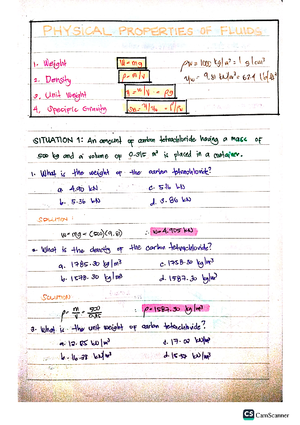 PHYSICAL PROPERTIES OF FLUIDS
1. Weight W = mg ρw = 1000 kg/m³ = 1 g/cm³
2. Density ρ = m/V γw = 9.81 kN/m³ = 62.4 lb/ft³
3. Unit Weight γ = W/V = ρg
4. Specific Gravity
SITUATION 1: An amount of carbon tetrachloride having a mass of
500 kg and a volume of 0.315 m³ is placed in a container.
1. What is the weight of the carbon tetrachloride?
a. 4.90 kN c. 5.16 kN
b. 5.36 kN d. 3.86 kN
SOLUTION:
W = mg = (500)(9.81) : W = 4.905 kN
2. What is the density of the carbon tetrachloride?
a. 1785.30 kg/m³ c. 1738.30 kg/m³
b. 1578.30 kg/m³ d. 1587.30 kg/m³
SOLUTION
ρ = m/V = 500/0.315 : ρ = 1587.30 kg/m³
3. What is the unit weight of carbon tetrachloride?
a. 12.85 kN/m³ c. 17.02 kN/m³
b. 16.38 kN/m³ d. 15.57 kN/m³
CS CamScanner